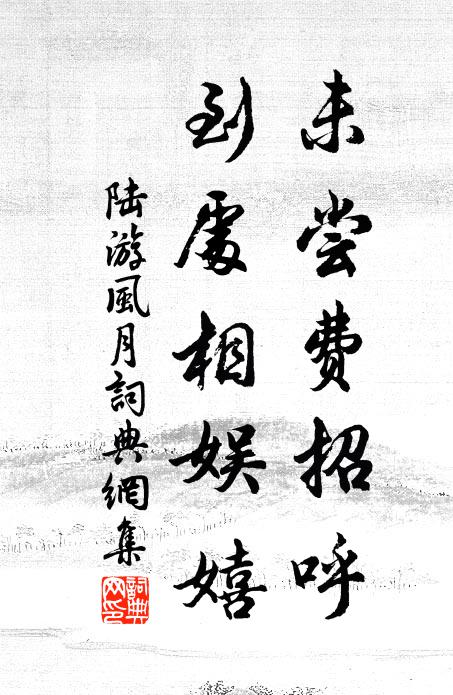 未尝费招呼
到處相娱嬉
陆游風月詞典網集
詞典网印